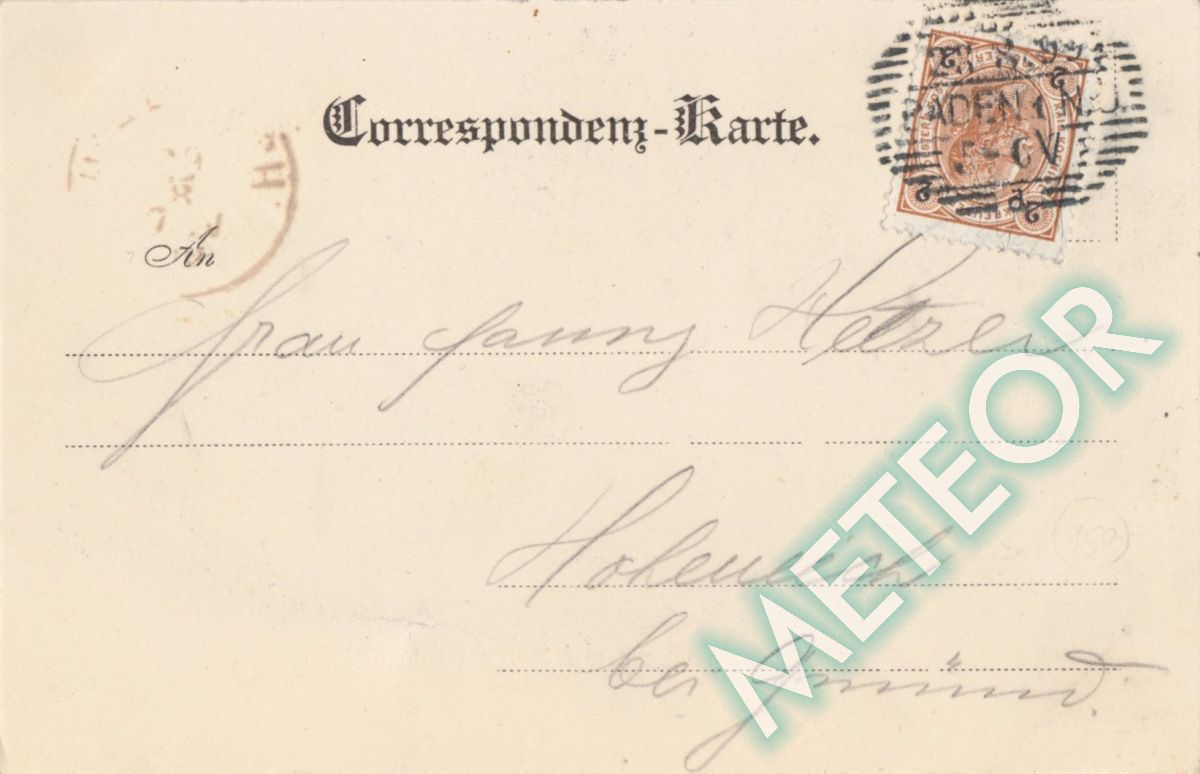 Correspondenz-Karte.
BADEN 1 N
An
Frau Fanny Hetzer
Hoheneich
bei Gmünd.
(153)
METEOR